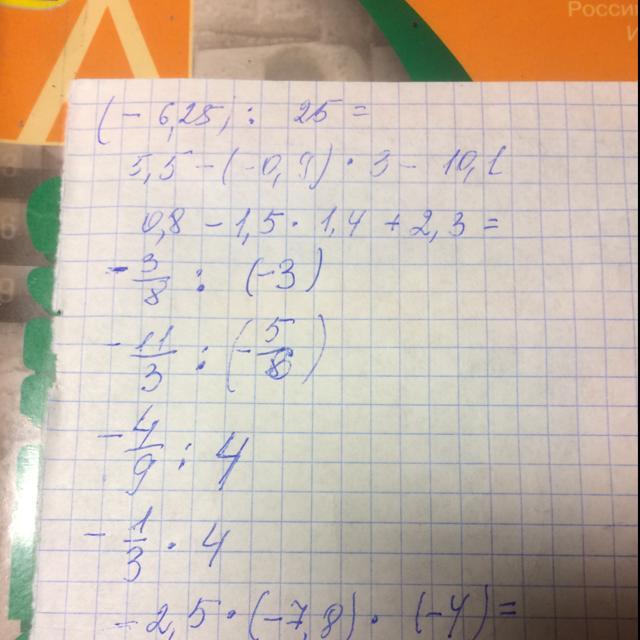 Россия
(-6,25) : 25 =
5,5 - (-0,9) · 3 - 10,1
0,8 - 1,5 · 1,4 + 2,3 =
- 3/8 : (-3)
- 11/3 : (- 5/6)
- 4/9 : 4
- 1/3 · 4
- 2,5 · (-7,8) · (-4) =